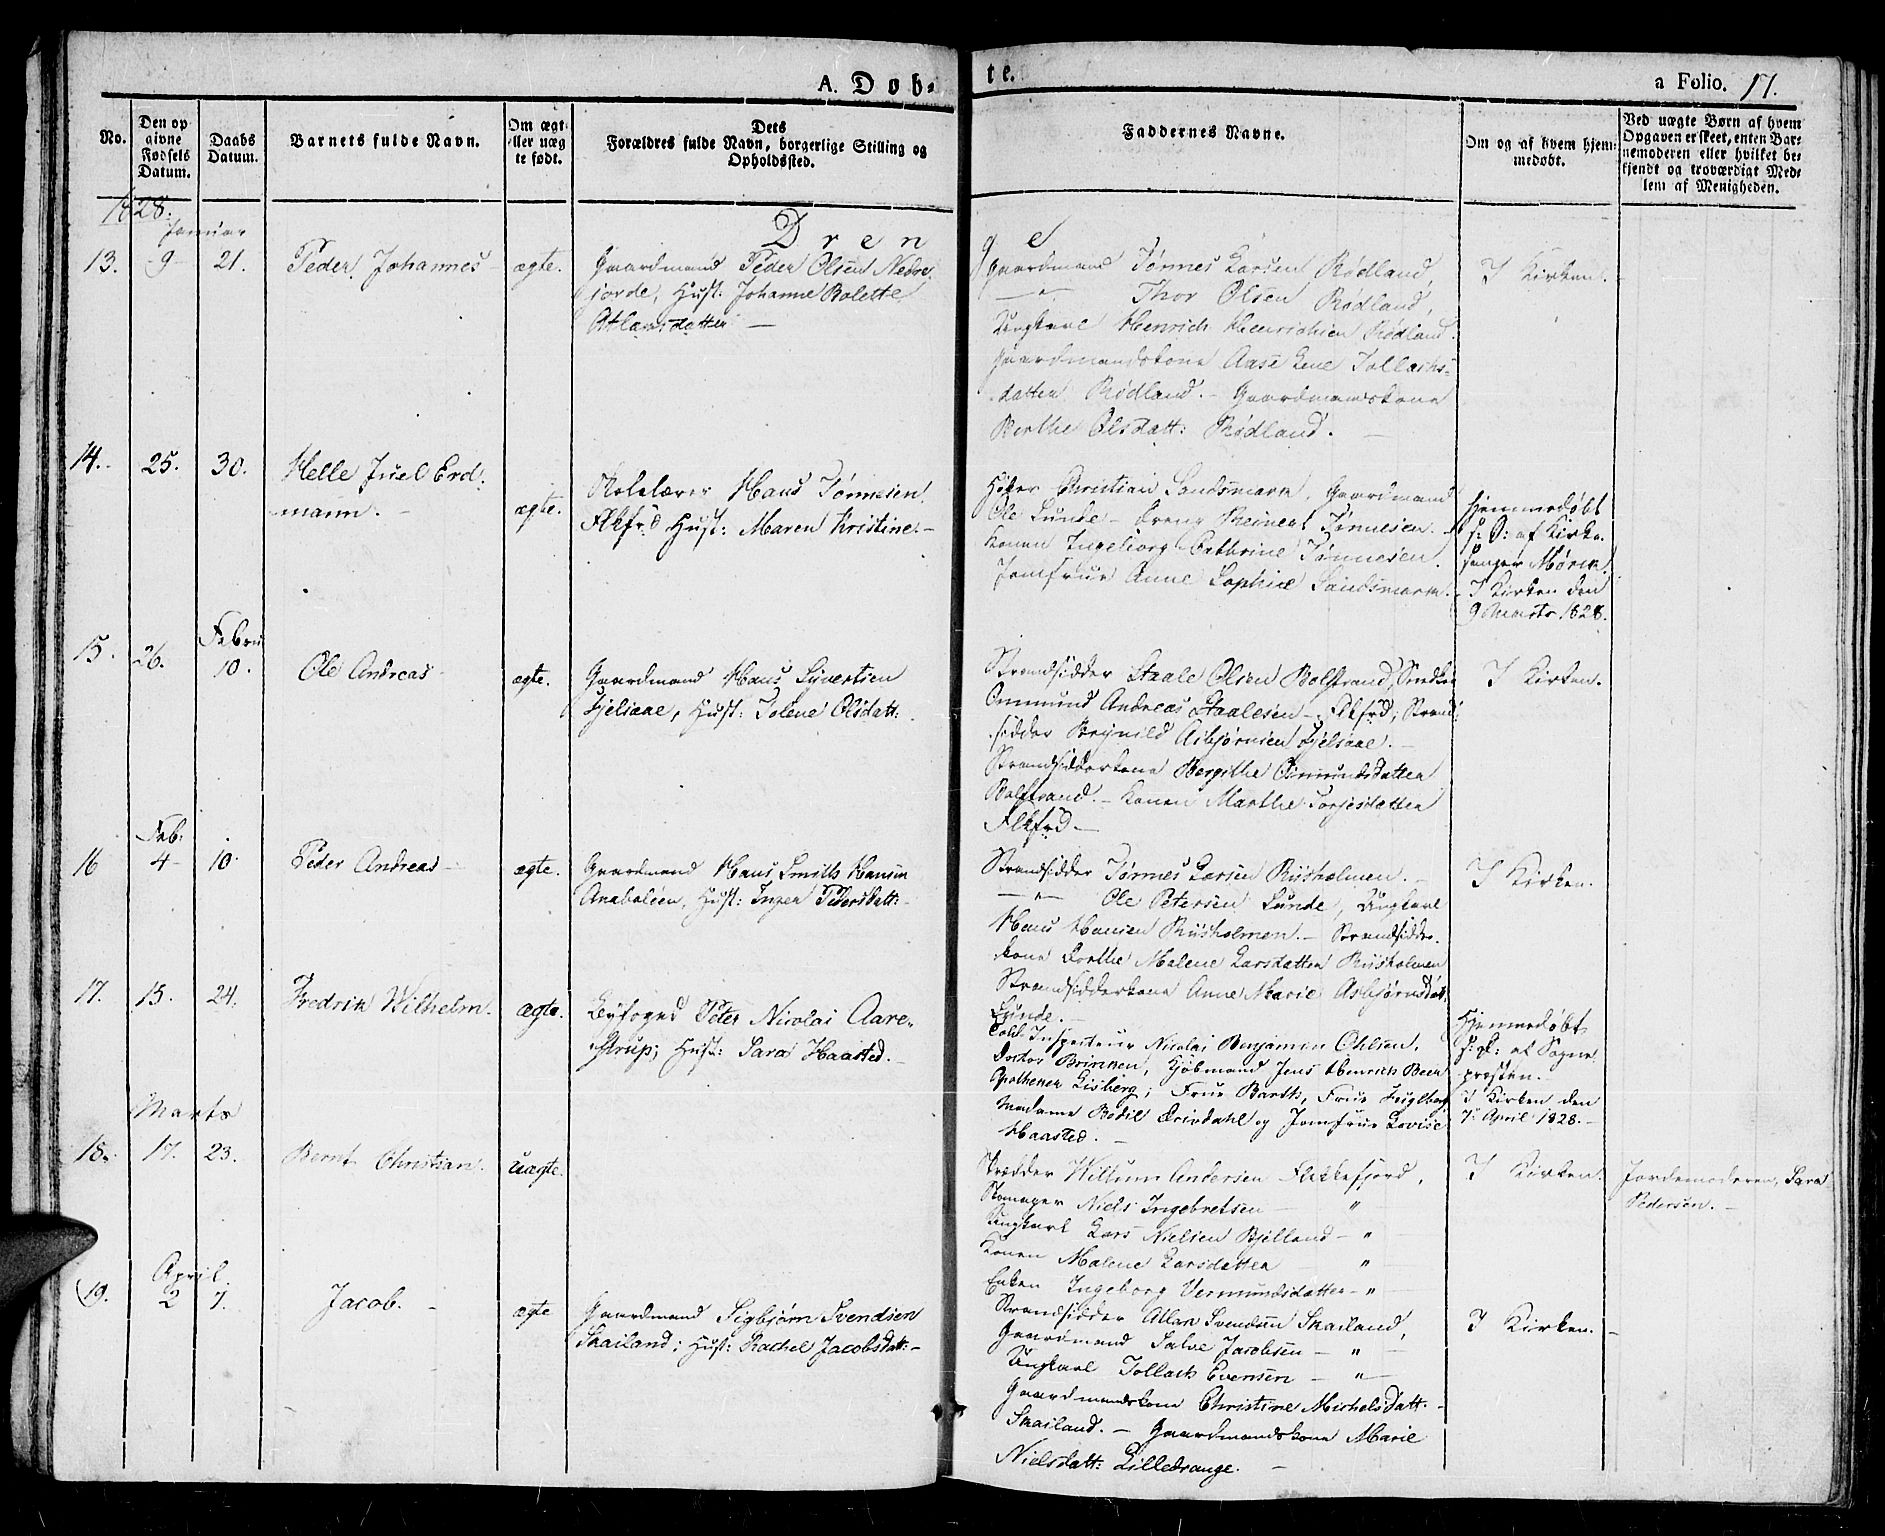 A. Døb-
te.
a Folio. 17.
No.
Den op
givne
Fødsels
Datum.
Daabs
Datum.
Barnets fulde Navn.
Om ægt-
eller uæg
te født.
Dets
Forældres fulde Navn, borgerlige Stilling og
Opholdssted.
Faddernes Navne.
Om og af hvem hjem-
medøbt.
Ved uægte Børn af hvem
Opgaven er skeet, enten Bar-
nemoderen eller hvilket be-
kjendt og troværdigt Med-
lem af Menigheden.
1828.
Januar
Drenge
13. 9 21. Peder Johannes ægte.
Gaardmand Peder Olsen Nedre
Hust: Johanne Bolette
Atlaksdatter
Gaardmand Tønnes Larsen Rødland,
Thor Olsen Rødland,
Ungkarl Henrich Henrichsen Rødland.
Gaardmandskone Aase Lene Tollachs-
datter Rødland. - Gaardmandskone
Berthe Olsdatt: Rødland.
I Kirken.
14. 25. 30. Helle Juel Erd-
mann. ægte.
Skolelærer Hans Tønnesen
Flkfrd Hust: Maren Kristine.
Christian Sandsmark, Gaardmand
Ole Lunde - Dreng Reinert Tønnesen.
Konen Ingeborg Cathrine Tønnesen.
Jomfrue Anne Sophie Sandsmark.
Hjemmedøbt
s: D: af Kirke-
sanger Mörch.
I Kirken den
9 Marts 1828.
Febru
15. 26. 10. Ole Andreas ægte.
Gaardmand Hans Syvertsen
Fjelsaae, Hust: Tolene Olsdatt:
Strandsidder Staale Olsen Bolstrand,
Ommund Andreas Staalesen - Flkfrd; Strand-
sidder Brynild Asbjørnsen Fjelsaae.
Strandsidderkone Bergithe Ommundsdatter
Bolstrand. - Konen Marthe Torjesdatter
Flkfrd
I Kirken.
Feb:
16 4 10. Peder Andreas ægte.
Gaardmand Hans Smith Hansen
Anabaléen, Hust: Inger Pedersdatt:
Strandsidder Tønnes Larsen Riisholmen.
Ole Petersen Lunde, Ungkarl
Hans Hansen Riisholmen. - Strandsidder-
kone Dorthe Malene Larsdatter Riisholmen
Strandsidderkone Anne Marie Asbjørnsdat:
Lunde.
I Kirken.
17. 15. 24. Fredrik Wilhelm. ægte.
Byfoged Peter Nicolai Aare-
strup; Hust: Sara Haasted.
Told Inspecteur Nicolai Benjamin Ohlsen,
Doctor Brinken, Kjøbmand Jens Henrich Beer
Apotheker Eisberg; Frue Barth, Frue Fuglberg
Madame Bodil Drivdahl og Jomfrue Lovise
Haasted.
Hjemmedøbt
s: D: af Sogne
præsten.
I Kirken den
7 April 1828.
Marts
18. 17. 23. Bernt Christian. uægte.
Skrædder Willum Andersen Flekkefjord,
Skomager Niels Ingebretsen "
Ungkarl Lars Nielsen Bjelland - "
Konen Malene Larsdatter "
Enken Ingeborg Vermundsdatter - "
I Kirken.
Jordemoderen, Sara
Pedersen.
April.
19. 2 7. Jacob. ægte
Gaardmand Sigbjørn Svendsen
Skailand; Hust: Rachel Jacobsdatt:
Strandsidder Atlak Svendsen Skailand,
Gaardmand Salve Jacobsen - "
Ungkarl Tollack Evensen - "
Gaardmandskone Christine Michelsdatt:
Skailand. - Gaardmandskone Marie
Nielsdatt: Lilledrange.
I Kirken.